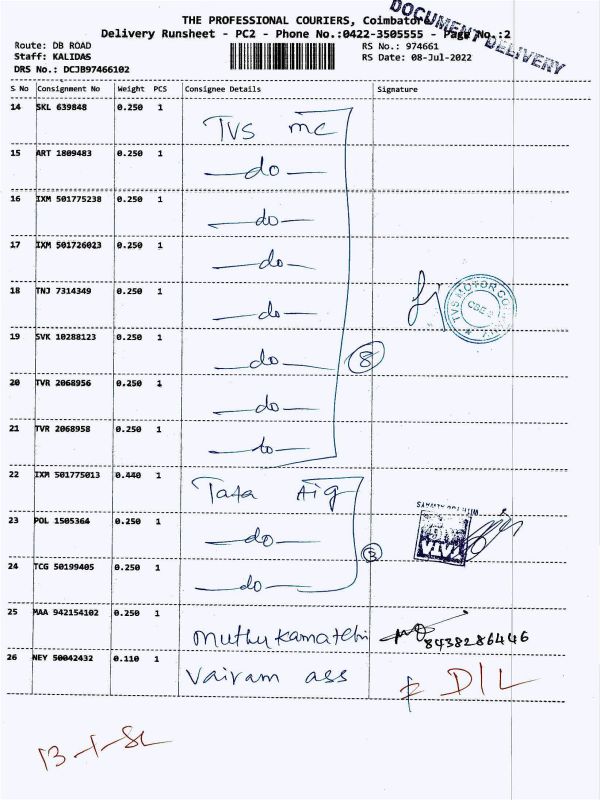 DOCUMENT DELIVERY
THE PROFESSIONAL COURIERS, Coimbatore
Delivery Runsheet - PC2 - Phone No.:0422-3505555 - Page No.:2
Route: DB ROAD RS No.: 974661
Staff: KALIDAS RS Date: 08-Jul-2022
DRS No.: DCJB97466102
S No Consignment No Weight PCS Consignee Details Signature
14 SKL 639848 0.250 1 TVS mc
15 ART 1809483 0.250 1 —do—
16 IXM 501775238 0.250 1 —do—
17 IXM 501726023 0.250 1 —do—
18 TNJ 7314349 0.250 1 —do—
TVS MOTOR CO CBE 2
19 SVK 10288123 0.250 1 —do— 8
20 TVR 2068956 0.250 1 —do—
21 TVR 2068958 0.250 1 —do—
22 IXM 501775013 0.440 1 Tata Aig
23 POL 1505364 0.250 1 —do— 3
WITH YOU ALWAYS
TATA
24 TCG 50199405 0.250 1 —do—
25 MAA 942154102 0.250 1 8438286446
26 NEY 50042432 0.110 1 Vairam ass D/L